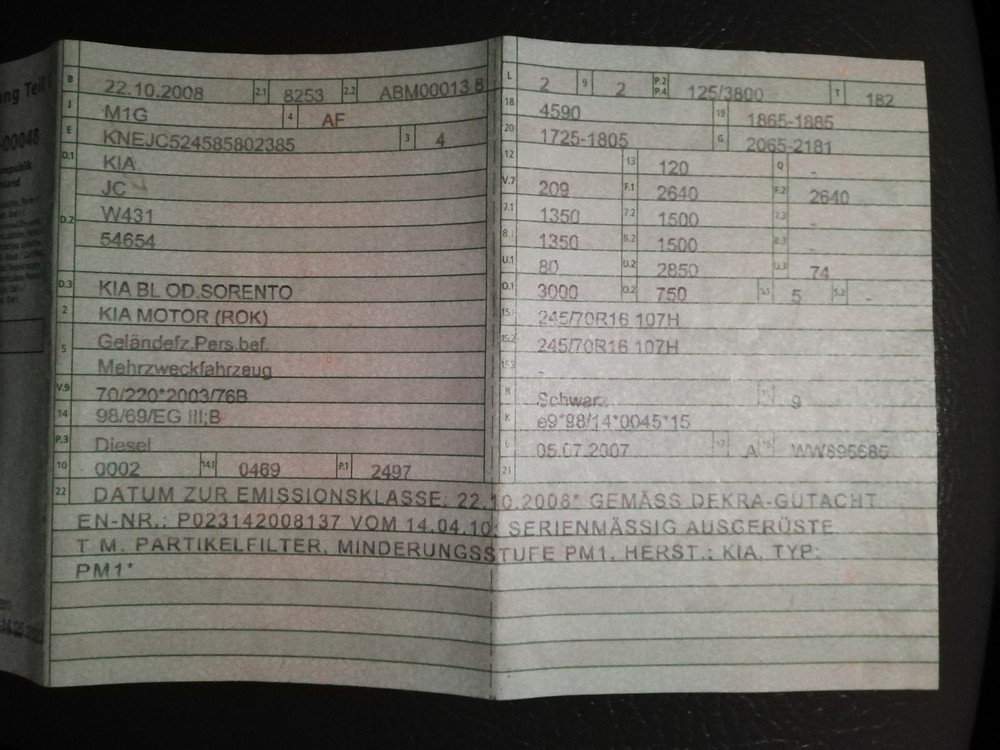 ng Teil I
-00048
B 22.10.2008 2.1 8253 2.2 ABM00013 8
J M1G 4 AF
E KNEJC524585802385 3 4
D.1 KIA
JC
D.2 W431
54654
D.3 KIA BL OD.SORENTO
2 KIA MOTOR (ROK)
5 Geländefz.Pers.bef.
Mehrzweckfahrzeug
V.9 70/220*2003/76B
14 98/69/EG III;B
P.3 Diesel
10 0002 14.1 0469 P.1 2497
L 2 9 2 P.2 P.4 125/3800 T 182
18 4590 19 1865-1885
20 1725-1805 G 2065-2181
12 13 120 Q -
V.7 209 F.1 2640 F.2 2640
7.1 1350 7.2 1500 7.3 -
8.1 1350 8.2 1500 8.3 -
U.1 80 U.2 2850 U.3 74
O.1 3000 O.2 750 S.1 5 S.2 -
15.1 245/70R16 107H
15.2 245/70R16 107H
15.3 -
R Schwarz 9
K e9*98/14*0045*15
6 05.07.2007 A WW895685
21
22 DATUM ZUR EMISSIONSKLASSE: 22.10.2008* GEMÄSS DEKRA-GUTACHT
EN-NR.: P023142008137 VOM 14.04.10: SERIENMÄSSIG AUSGERÜSTE
T M. PARTIKELFILTER, MINDERUNGSSTUFE PM1, HERST.: KIA, TYP:
PM1*